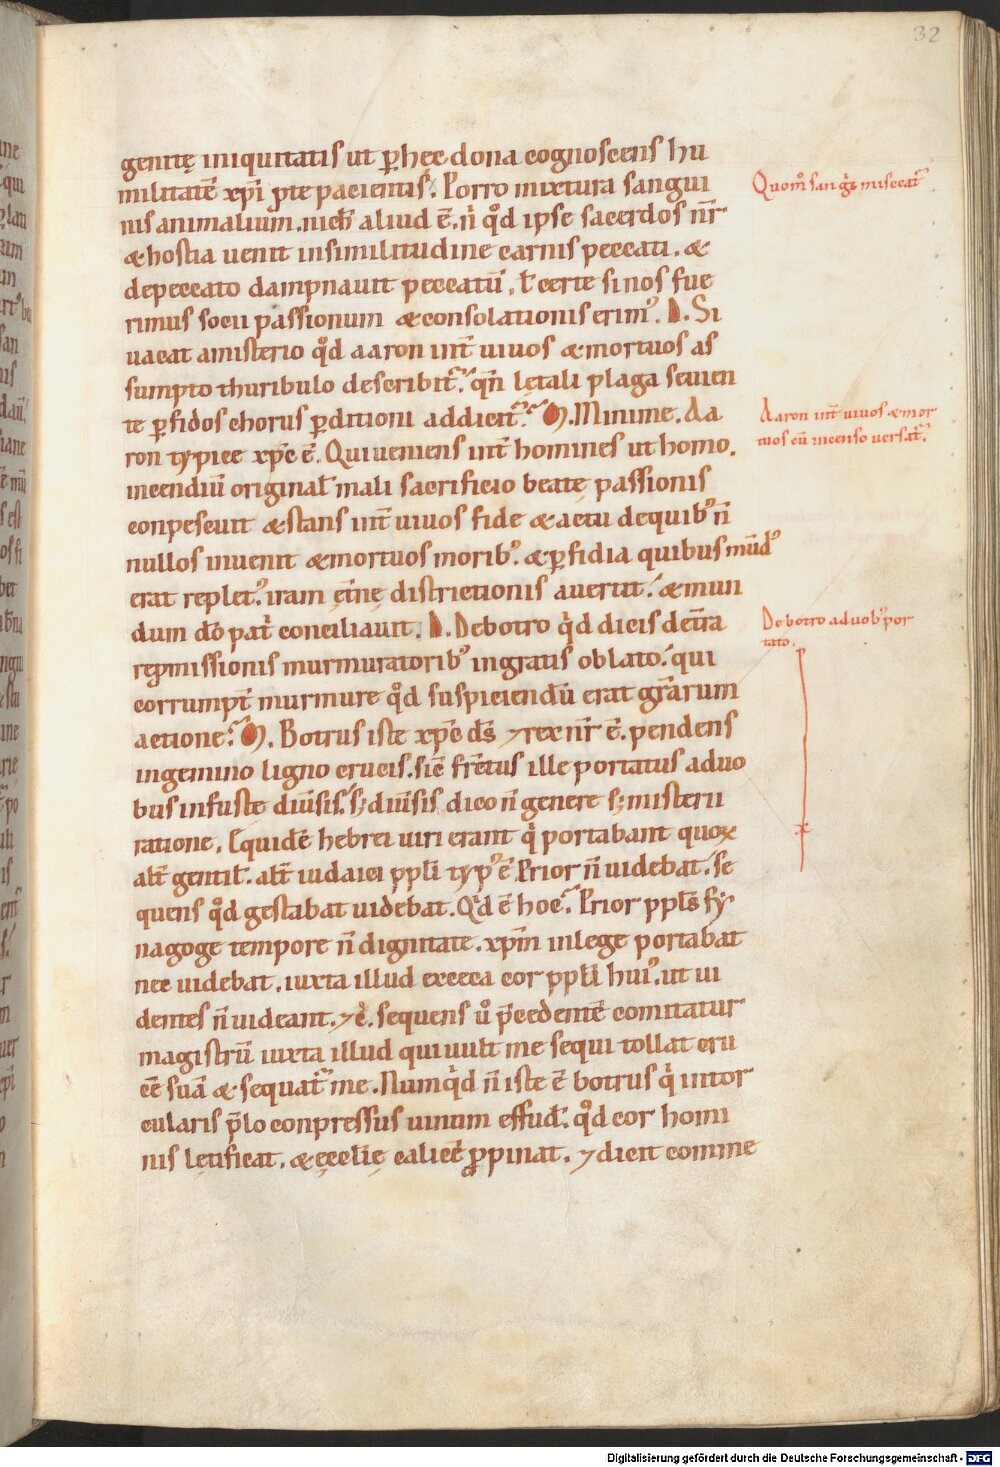 32
genitę iniquitatis ut ꝑ hęc dona cognoscens hu
militatē xp̄i ꝑte pacientis. Porro mixtura sangui
nis animalium. nich̄ aliud ē. n̄ qͦd ipse sacerdos nr̄
& hostia uenit in similitudine carnis peccati. &
de peccato dampnauit peccatū. ł certe si nos fue
rimus socii passionum & consolationis erimꝰ. D. Si
uacat a misterio qͦd aaron int̄ uiuos & mortuos as
sumpto thuribulo describit᷑. qn̄ lętali plaga seuien
te ꝑfidos chorus ꝑditioni addicit᷑. M. Minime. Aa
ron typice xp̄c ē. Qui ueniens int̄ homines ut homo.
incendiū original̄ mali sacrificio beatę passionis
conpescuit & stans int̄ uiuos fide & actu de quibꝰ n̄
nullos inuenit & mortuos moribꝰ. & ꝑfidia quibus mūdꝰ
erat repletꝰ. iram et̄nę districtionis auertit. & mun
dum dō pat̄ conciliauit. D. De botro qͥd dicis de t̄ra
repmissionis murmuratoribꝰ ingratis oblato. qui
corrumpt̄ murmure qͦd suspiciendū erat gr̄arum
actione. M. Botrus iste xp̄c ds̄ ⁊ rex nr̄ ē. pendens
in gemino ligno crucis. sic̄ fr̄ctus ille portatus a duo
bus in fuste diūsis. s; diūsis dico n̄ genere s; misterii
ratione. Equidē hebrei uiri erant qͥ portabant quoꝝ
alt̄ gentil̄. alt̄ iudaici ppl̄i typꝰ ē. Prior n̄ uidebat. se
quens qͦd gestabat uidebat. Qͥd ē hoc. Prior ppl̄s sy
nagoge tempore n̄ dignitate. xp̄m in lege portabat
nec uidebat. iuxta illud exceca cor ppl̄i huiꝰ. ut ui
dentes n̄ uideant. ⁊c̄. sequens uͦ p̄cedentē comitatur
magistrū iuxta illud qui uult me sequi tollat cru
cē suā & sequat᷑ me. Numqͥd n̄ iste ē botrus qͥ in tor
cularis p̄lo conpressus uinum effud̄. qͦd cor homi
nis lętificat. & ęcclīę calicē ꝓpinat. ⁊ dicit comme
Quomͦ sangͥs misceat᷑
Aaron int̄ uiuos & mor
tuos cū incenso uersat᷑.
De botro a duobꝰ por
tato.
Digitalisierung gefördert durch die Deutsche Forschungsgemeinschaft - DFG